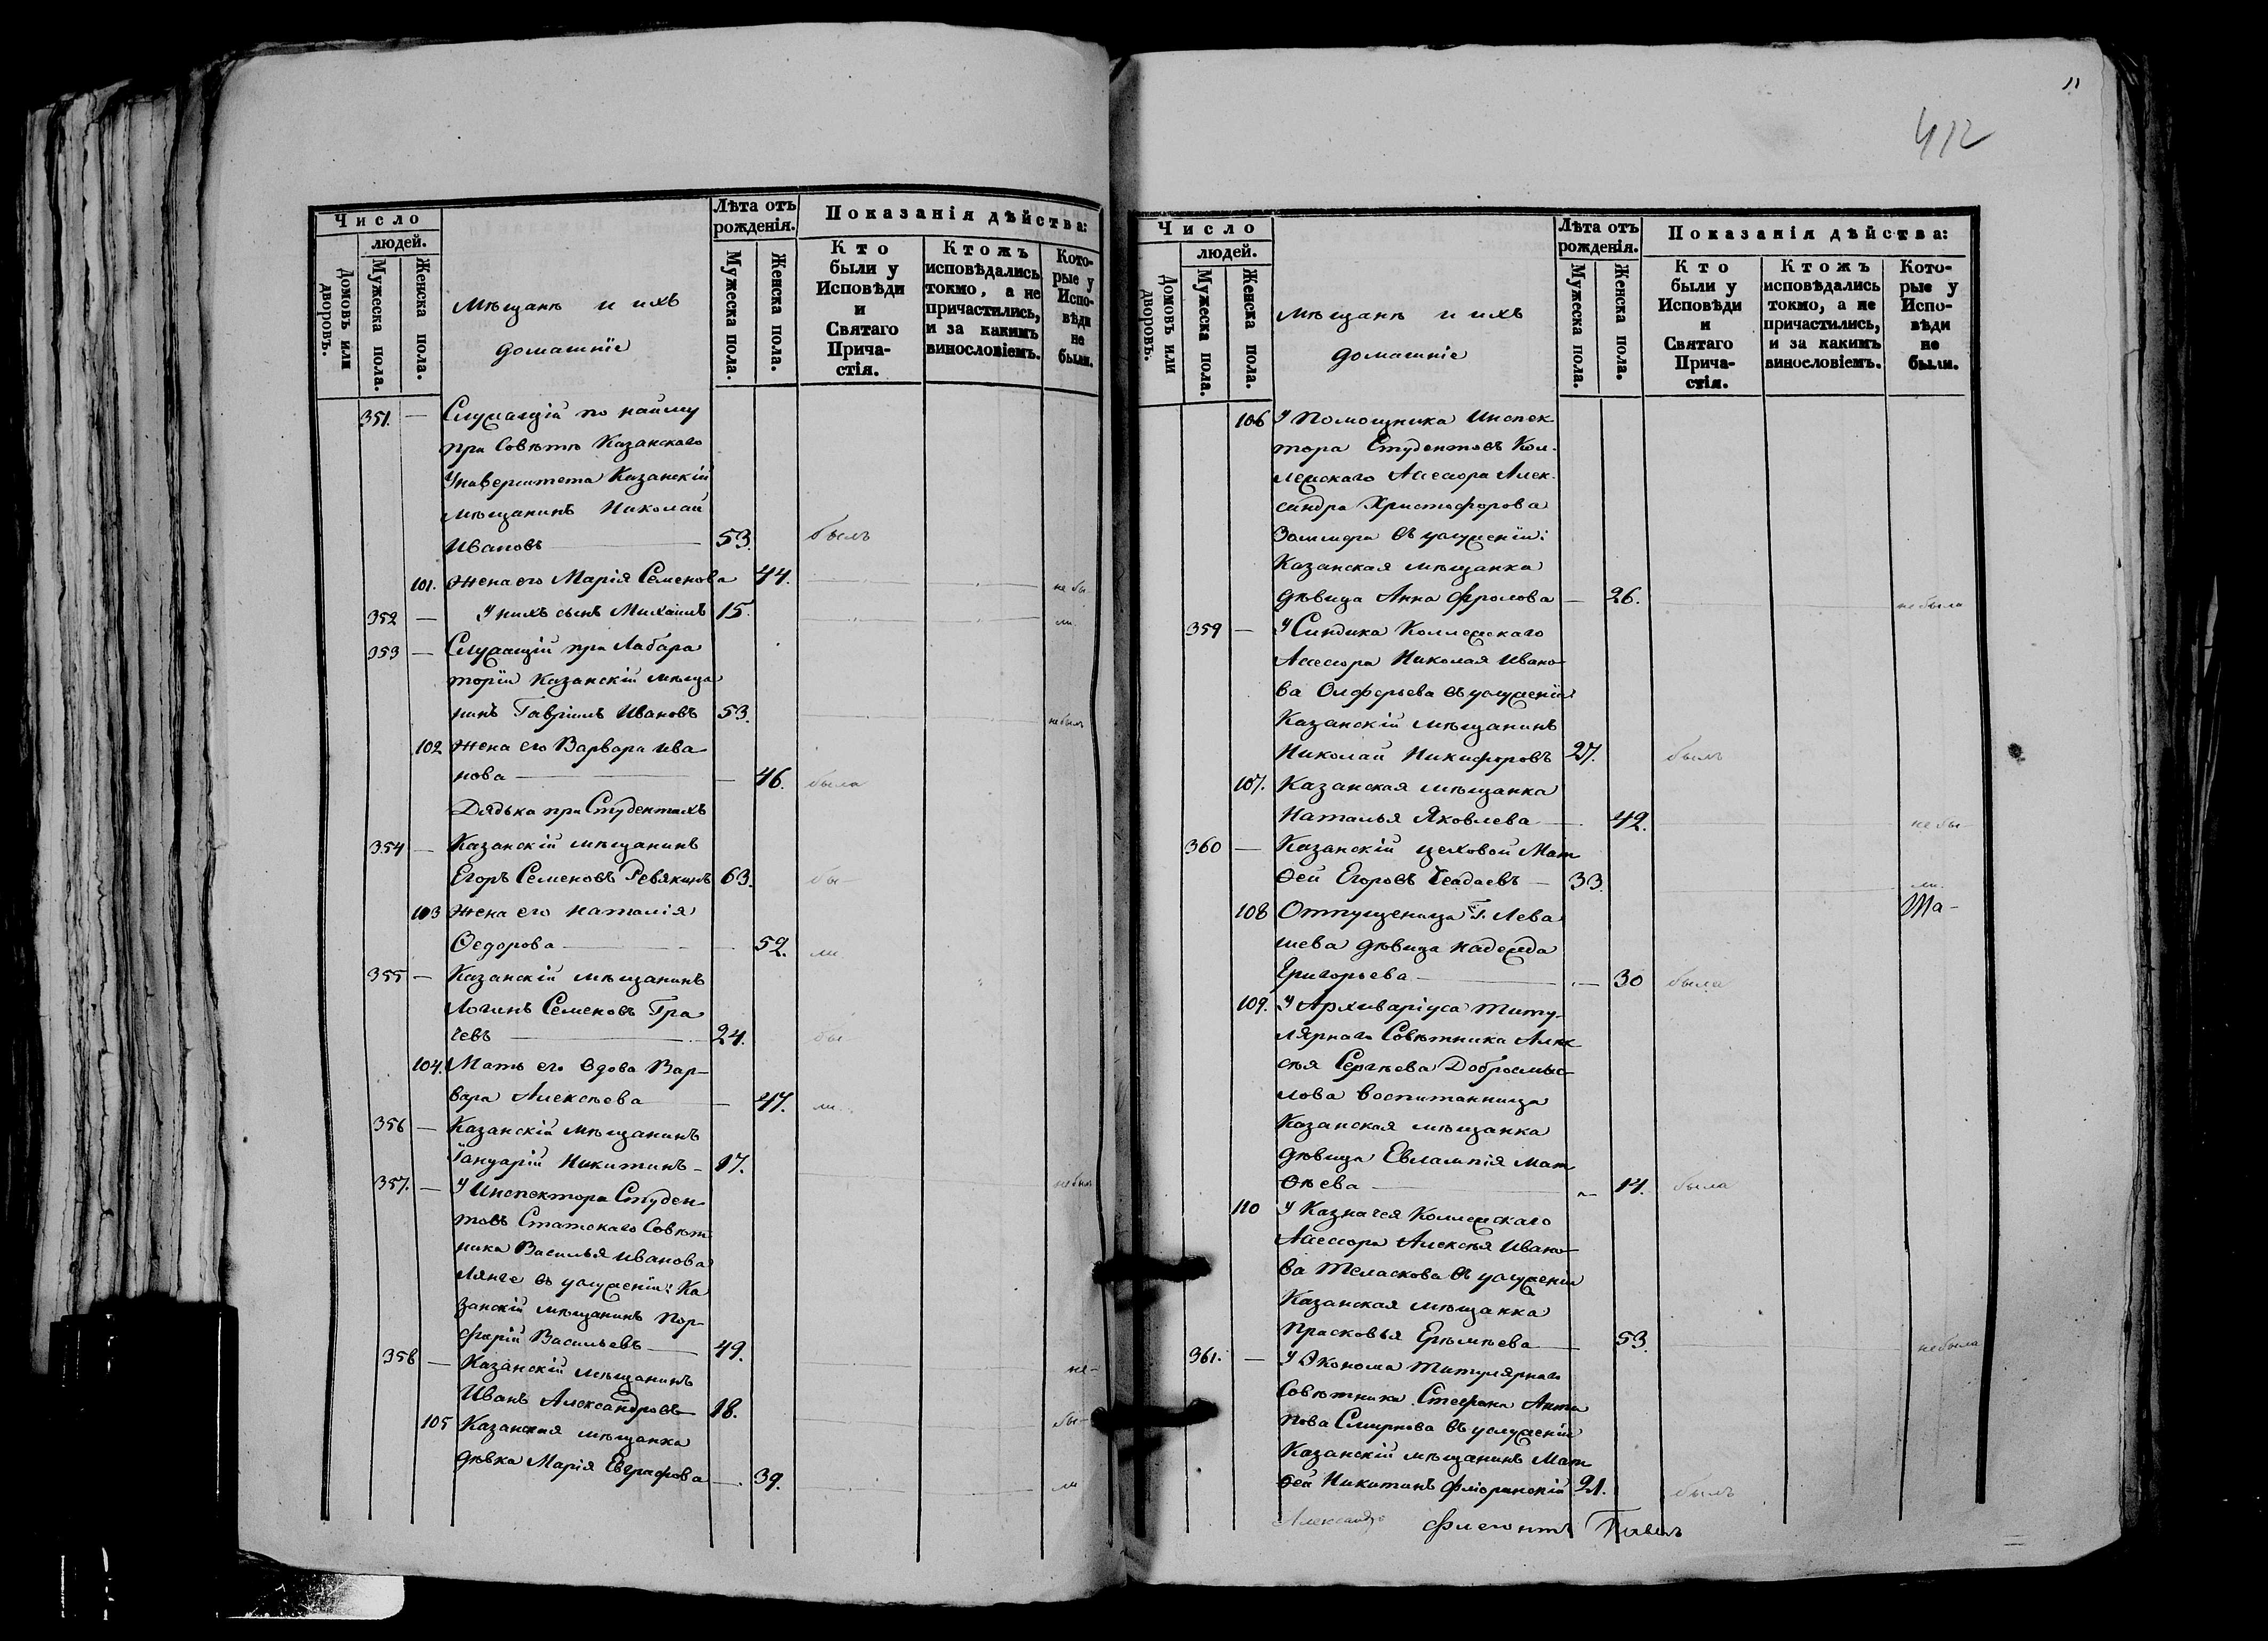 Число
людей.
Домовъ или дворовъ.
Мужеска пола.
Женска пола.
Мѣщанѣ и ихъ
домашнїе
Лѣта отъ
рожденія.
Мужеска пола.
Женска пола.
Показанія дѣйства:
Кто
были у
Исповѣди
и
Святаго
Прича-
стія.
Ктожъ
исповѣдались
токмо, а не
причастились,
и за какимъ
винословіемъ.
Кото-
рые у
Испо-
вѣди
не
были.
351. — Служащій по найму
при Совѣтѣ Казанскаго
Университета Казанскій
мѣщанинъ Николай
Ивановъ — 53. былъ
101. Жена его Марія Семенова 44. не бы-
352 — У нихъ сынъ Михаилъ 15. ли.
353 — Служащій при Лабара
торіи Казанскій мѣща
нинъ Гавріилъ Ивановъ 53. не былъ
102 Жена его Варвара Ива
нова — 46. была
Дядька при Студентахъ
354 — Казанскій мѣщанинъ
Егоръ Семеновъ Ревякинъ 63. бы-
103 Жена его Наталія
Ѳедорова — 52. ли
355 — Казанскій мѣщанинъ
Логинъ Семеновъ Гра
чевъ — 24. бы
104. Мать его вдова Вар-
вара Алексѣева — 47. ли.
356 — Казанскій мѣщанинъ
Іануарій Никитинъ — 17.
357. — У Инспектора Студен
товъ Статскаго Совѣт
ника Василья Иванова
Лянге въ услуженіи: Ка
занскій мѣщанинъ Пор-
фирій Васильевъ — 49.
не былъ
358 — Казанскій мѣщанинъ не-
Иванъ Александровъ 18. бы-
105 Казанская мѣщанка
дѣвка Марія Евграфова — 39. ли
11
412
Число
людей.
Домовъ или дворовъ.
Мужеска пола.
Женска пола.
Мѣщанѣ и ихъ
домашніе
Лѣта отъ
рожденія.
Мужеска пола.
Женска пола.
Показанія дѣйства:
Кто
были у
Исповѣди
и
Святаго
Прича-
стія.
Ктожъ
исповѣдались
токмо, а не
причастились,
и за какимъ
винословіемъ.
Кото-
рые у
Испо-
вѣди
не
были.
106 У Помощника Инспек
тора Студентовъ Кол-
лежскаго Ассесора Алек-
сандра Христофорова
въ услуженіи:
Казанская мѣщанка
дѣвица Анна Фролова — 26. не была
359 — У Синдика Коллежскаго
Ассесора Николая Ивано-
ва Олферьева въ услуженіи
Казанскій мѣщанинъ
Николай Никифоровъ 27. былъ
107. Казанская мѣщанка
Наталья Яковлева — 42. не бы-
360 — Казанскій цеховой Мат
ѳей Егоровъ Чеадаевъ — 33. ли.
108 Отпущеница Г. Лева
шева дѣвица Надежда
Григорьева — 30 была
109. У Архиваріуса Титу-
лярнаго Совѣтника Алек
сѣя Сергѣева Добросмыс-
лова воспитанница
Казанская мѣщанка
дѣвица Евлампія Мат
ѳѣева — 14. была
110 У Казначея Коллежскаго
Ассесора Алексѣя Ивано-
ва въ услуженіи
Казанская мѣщанка
Прасковья Ерѣмѣева — 53. не была
361. — У Эконома Титулярнаго
Совѣтника Стефана Анти
пова Смирнова въ услуженіи
Казанскій мѣщанинъ Мат
ѳей Никитинъ Флоринскій 21. былъ
Александръ